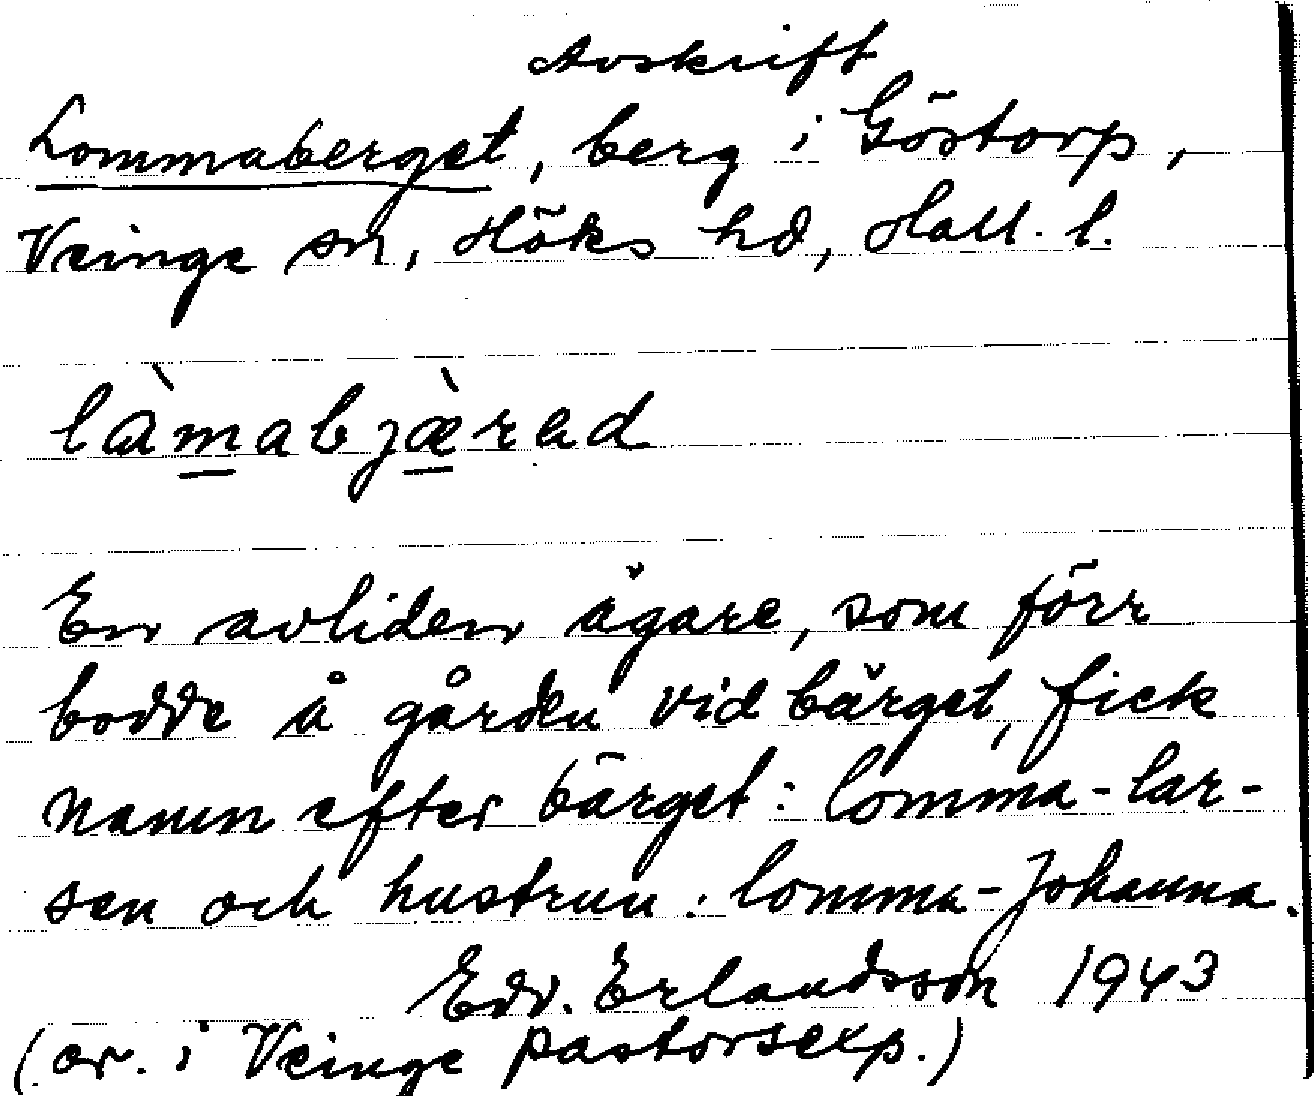 Avskrift
Lommaberget, berg i Göstorp,
Veinge sn, Höks hd, Hall. l.
làmabjæ̀rad
En avliden ägare, som förr
bodde å gården vid bärget, fick
namn efter bärget: lomma-lar-
sen och hustrun: lomma-Johanna.
Edv. Erlandsson 1943
(or. i Veinge pastorsexp.)